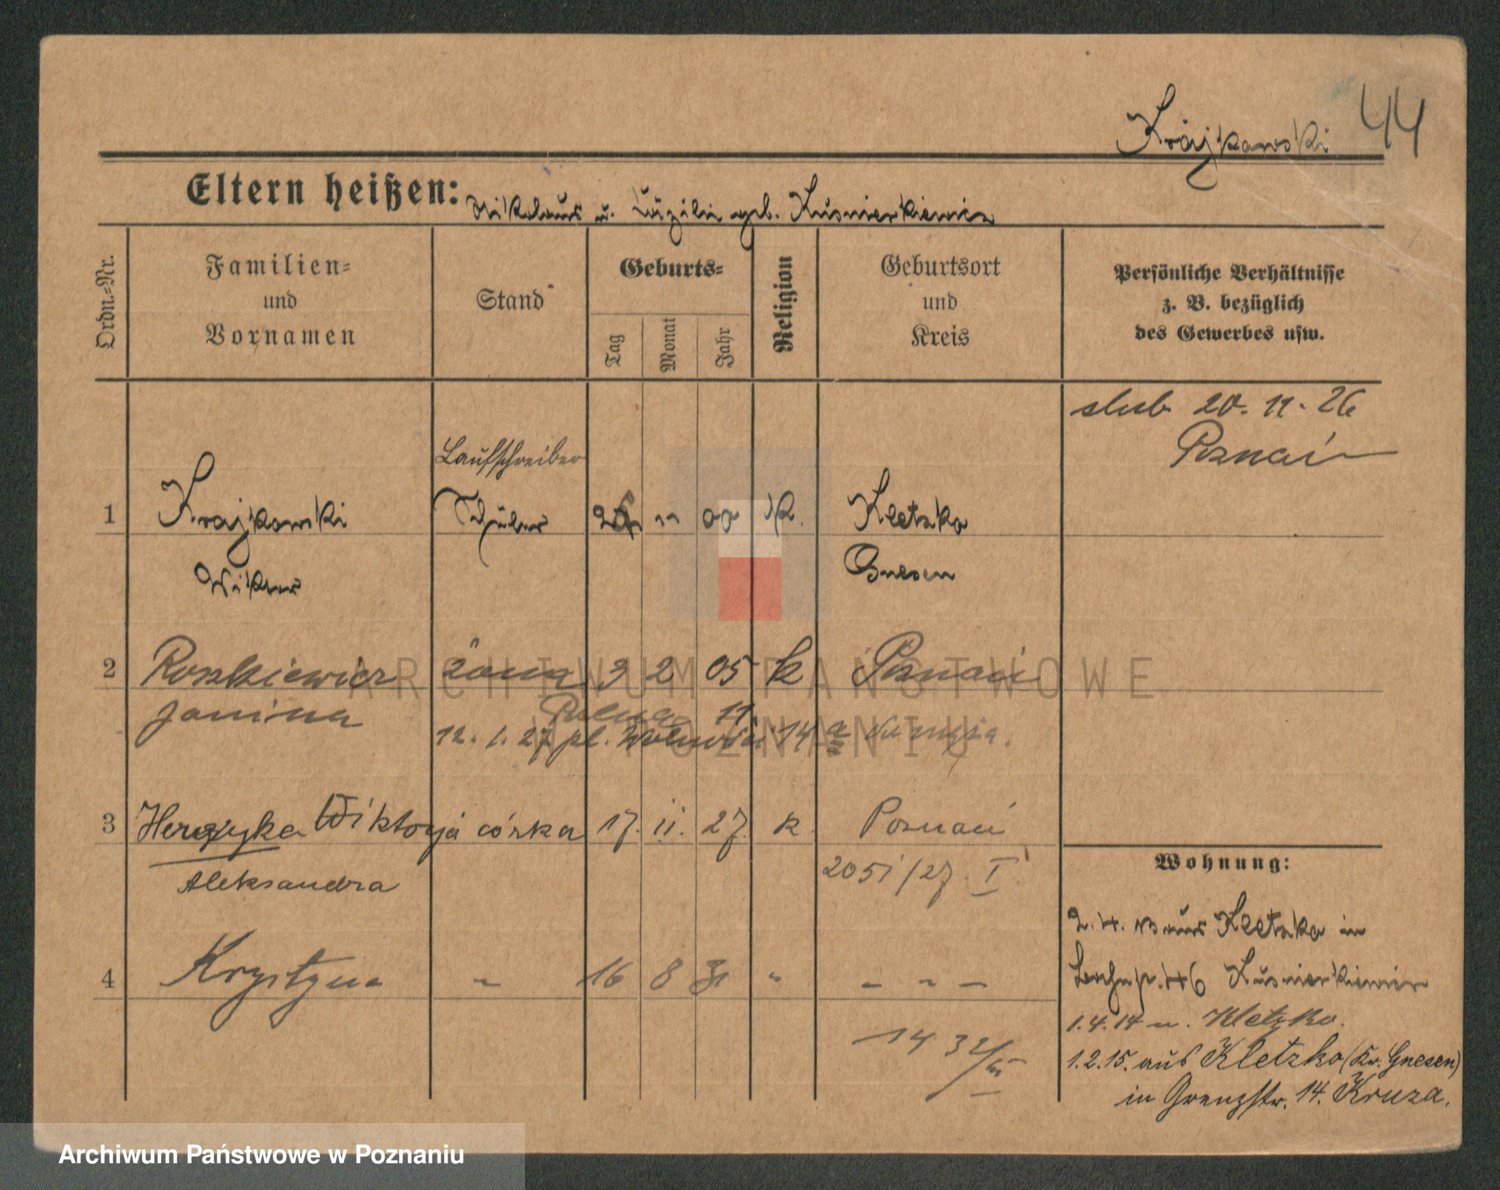 Krajkowski 44
Eltern heißen: Nikolaus u. geb. Kusnierkiewicz
Ordn.-Nr.
Familien=
und
Vornamen
Stand
Geburts=
Tag
Monat
Jahr
Religion
Geburtsort
und
Kreis
Persönliche Verhältnisse
z. B. bezüglich
des Gewerbes usw.
slub 20. 11. 26
Poznań
Laufschreiber
1 Krajkowski 00 K. Kletzko
Gnesen
2 Roszkiewicz żona 3 2 05 k Poznań
Janina
12. 1. 27 pl. 14
3 Wiktorja córka 17. 11. 27. k Poznań
Aleksandra
2051/27. I
4 Krystyna - 16 8 31 " - " -
1432/
Wohnung:
2.4. aus Kletzko in
46 Kusnierkiewicz
1.4.14 n. Kletzko.
1.2.15. aus Kletzko (Kr. Gnesen)
in Grenzstr. 14. Kruza.
ARCHIWUM PAŃSTWOWE
W POZNANIU
Archiwum Państwowe w Poznaniu